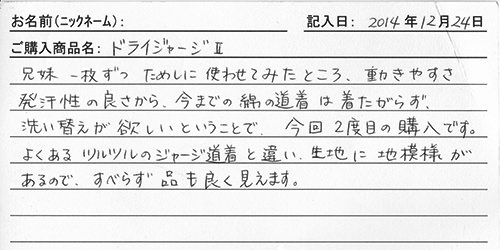 お名前(ニックネーム): 記入日: 2014年12月24日
ご購入商品名: ドライジャージⅡ
兄妹 一枚ずつ ためしに 使わせてみたところ、動きやすさ
発汗性の良さから、今までの綿の道着は着たがらず、
洗い替えが欲しいということで、今回2度目の購入です。
よくある ツルツルのジャージ道着と違い、生地に地模様が
あるので、すべらず品も良く見えます。